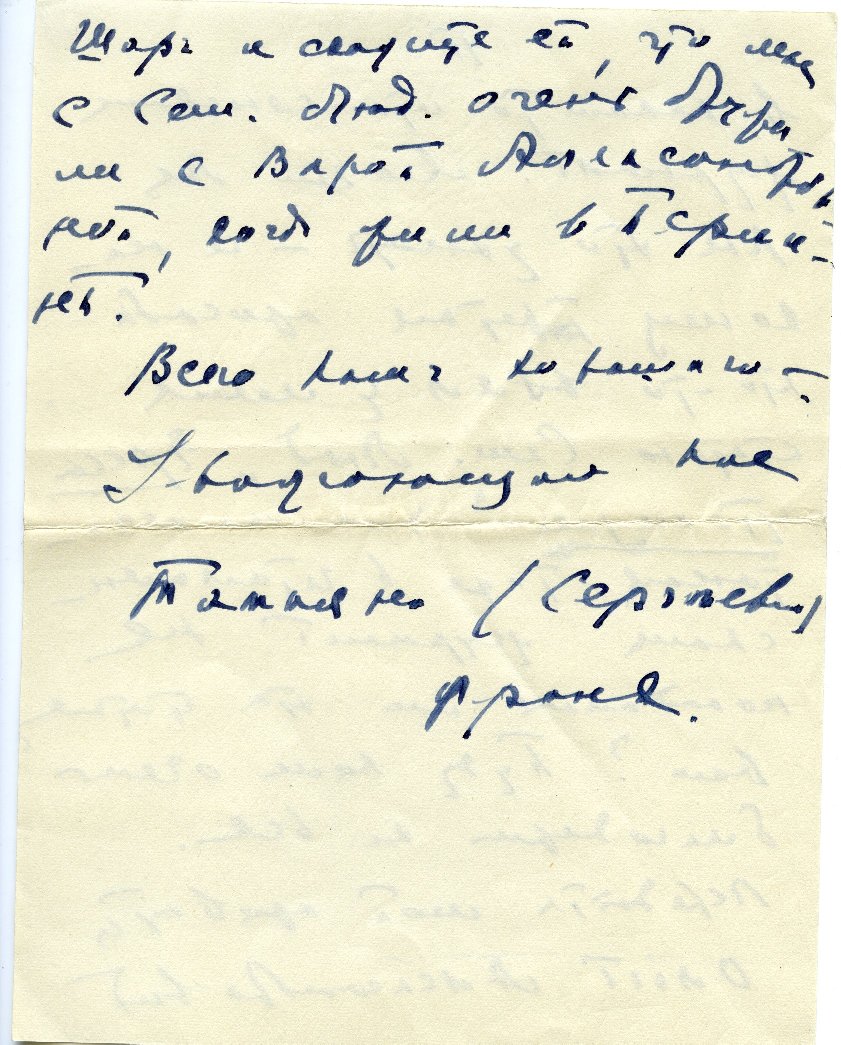 Шоръ и скажите ей, что мы
с Сем. Люд. очень дружи
ли с Александров
ной, когда жили в Берли-
не.
Всего Вамъ хорошаго.
Уважающая Вас
Татьяна (Сергеевна)
Франк.